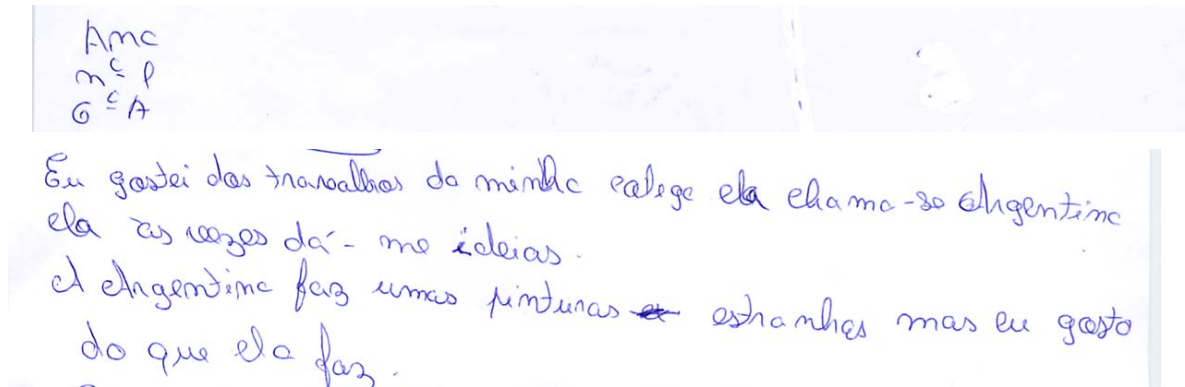 Ana
nº 1
6º A
Eu gostei dos trabalhos da minha colega ela chama-se Argentina
ela às vezes dá-me ideias.
A Argentina faz umas pinturas estranhas mas eu gosto
do que ela faz.